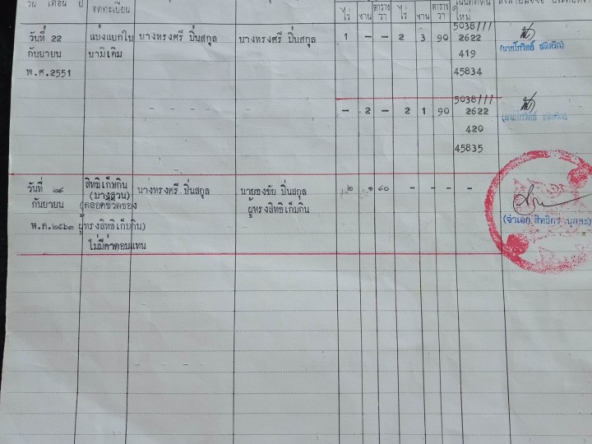 วัน เดือน ปี
จดทะเบียน
ไร่ งาน ตาราง
วา ไร่ งาน ตาราง
วา
ใหม่
วันที่ 22 แบ่งแยกใน นางทรงศรี ปิ่นสกุล นางทรงศรี ปิ่นสกุล 1 - - 2 3 90 5038 III
กันยายน นามเดิม 2622
พ.ศ.2551 419
45834
- - - - - 2 - 2 1 90 5038 III
2622
420
45835
วันที่ ๒๙ สิทธิเก็บกิน นางทรงศรี ปิ่นสกุล นายธงชัย ปิ่นสกุล ๒ ๑ ๙๐ - - - -
กันยายน (บางส่วน) ผู้ทรงสิทธิเก็บกิน
พ.ศ.๒๕๖๓ (ตลอดชีวิตของ
ผู้ทรงสิทธิเก็บกิน)
ไม่มีค่าตอบแทน